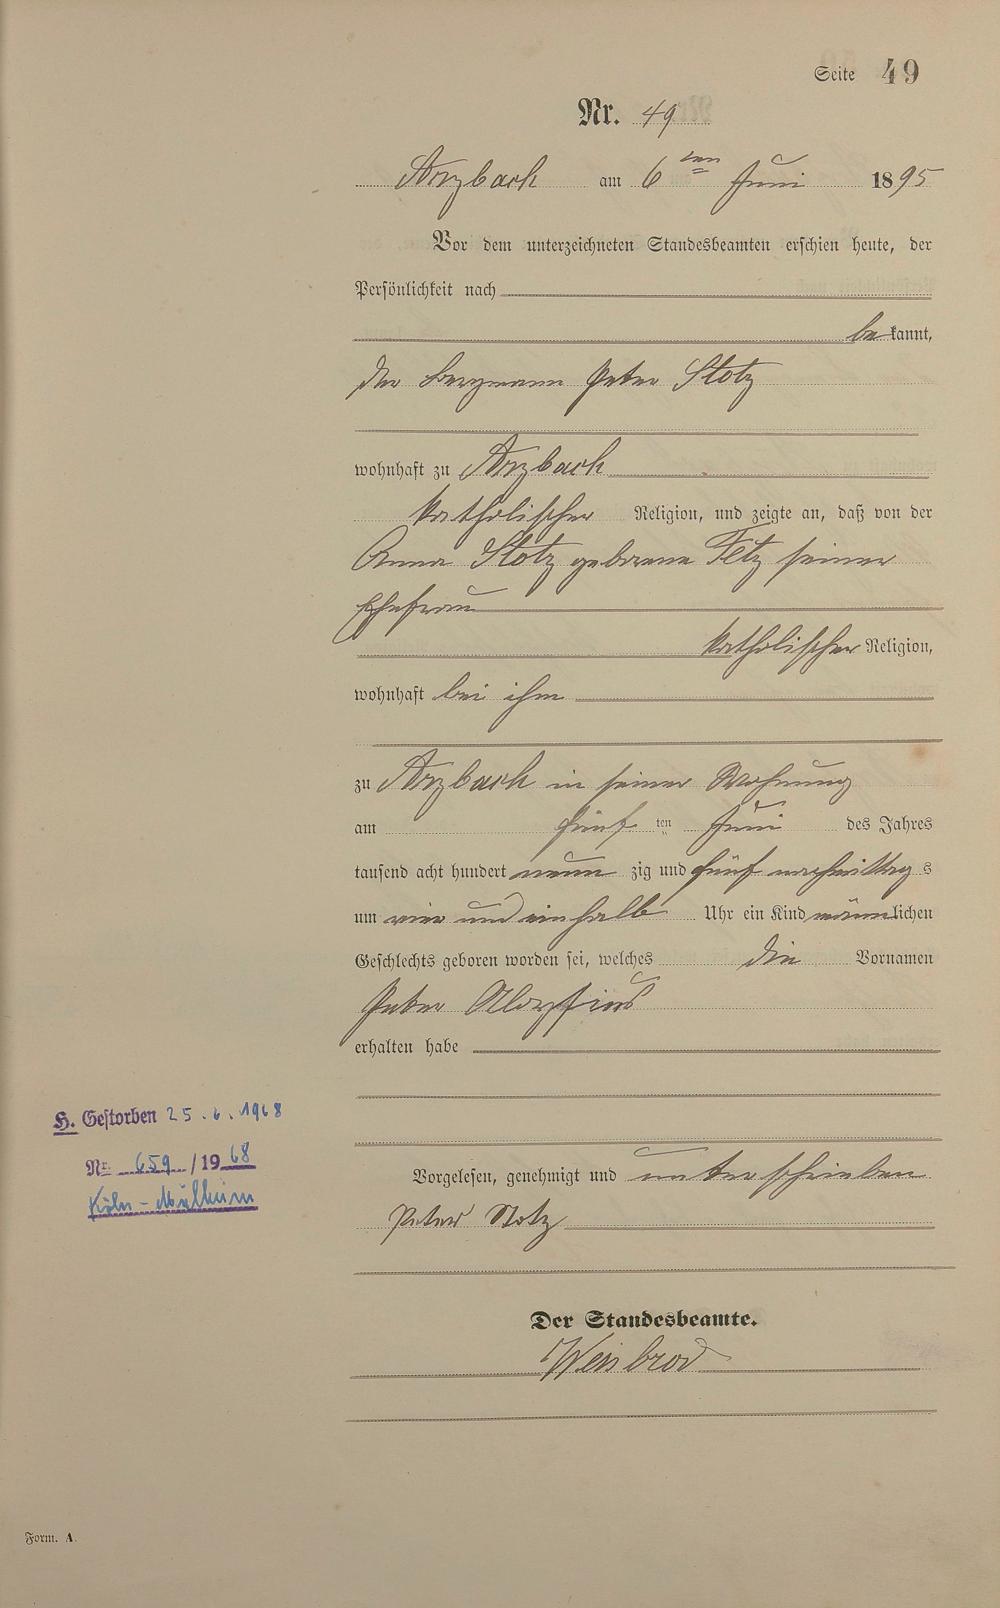 Seite 49
Nr. 49
Arzbach am 6ten Juni 1895
Vor dem unterzeichneten Standesbeamten erschien heute, der
Persönlichkeit nach
bekannt,
der Bergmann Peter Stotz
wohnhaft zu Arzbach
katholischer Religion, und zeigte an, daß von der
Anna Stotz geborene Fetz seiner
Ehefrau
katholischer Religion,
wohnhaft bei ihm
zu Arzbach in seiner Wohnung
am fünf ten Juni des Jahres
tausend acht hundert neun zig und fünf nachmittag s
um vier und einhalb Uhr ein Kind männlichen
Geschlechts geboren worden sei, welches die Vornamen
Peter Aloysius
erhalten habe
H. Gestorben 25.6.1968
Nr. 659/1968
Köln-Mülheim
Vorgelesen, genehmigt und unterschrieben
Peter Stotz
Der Standesbeamte.
Weisbrod
Form. A.